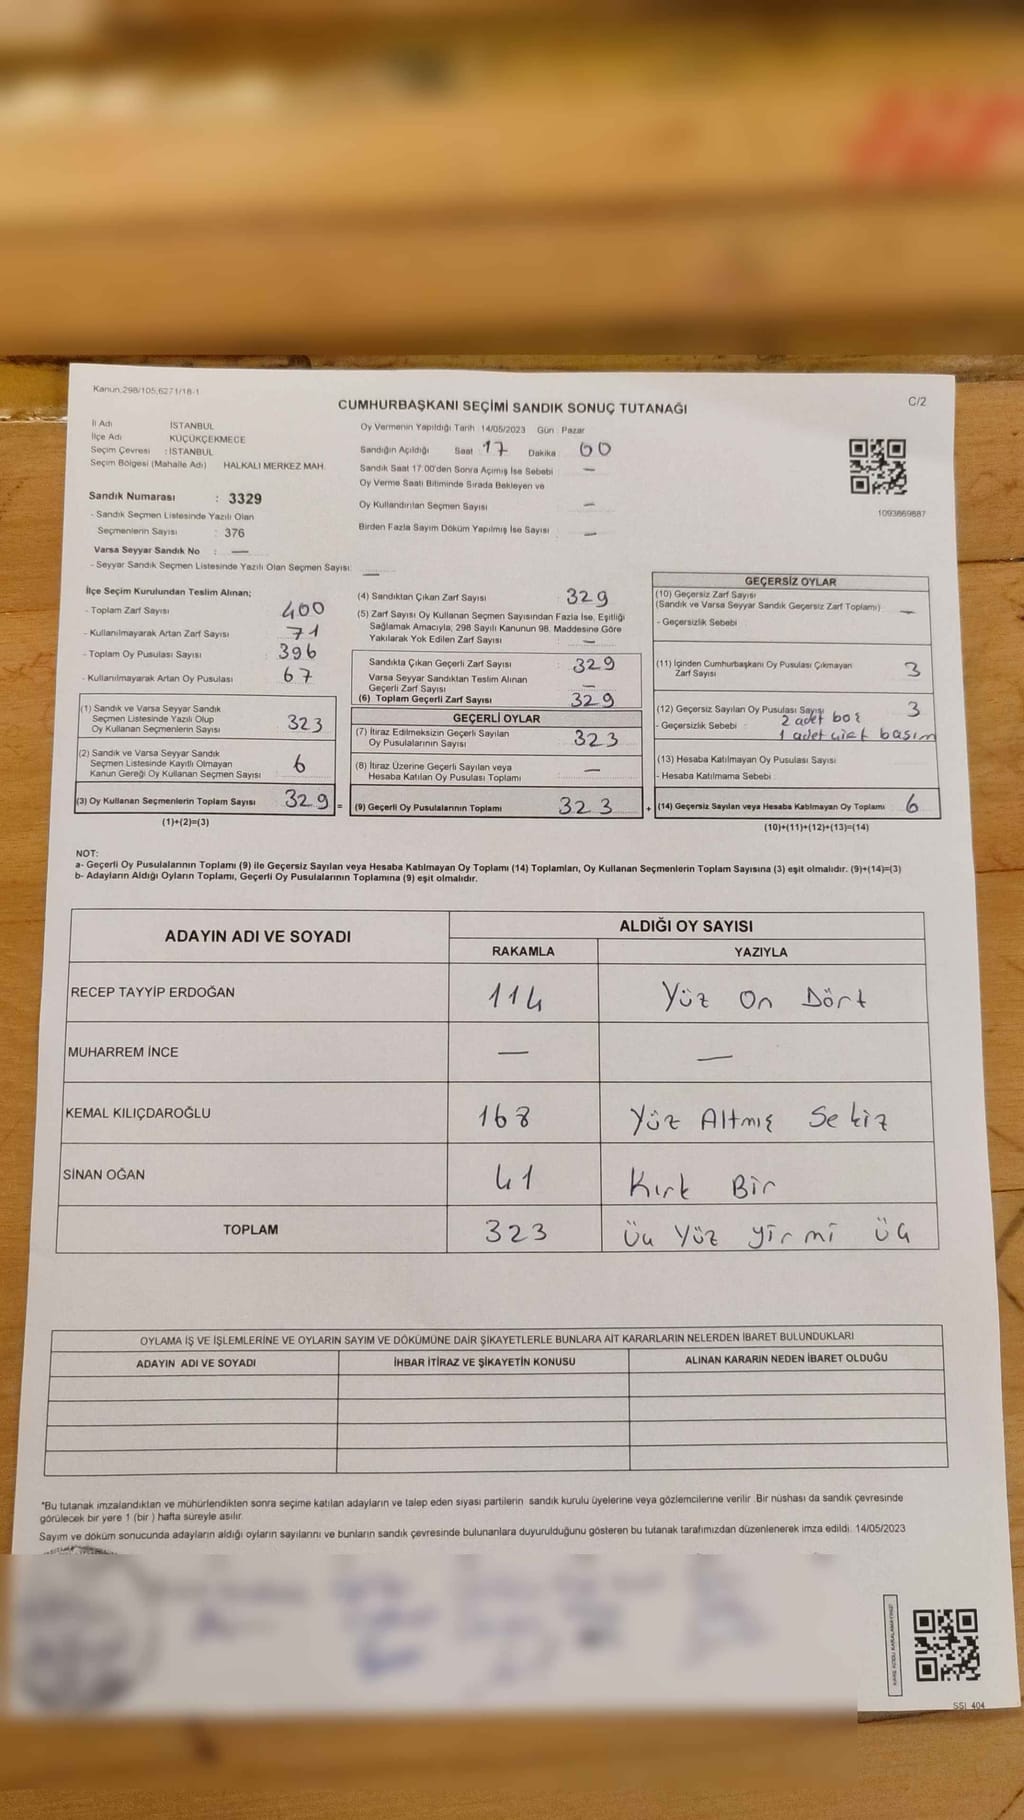 Kanun,298/105,6271/18-1
C/2
CUMHURBAŞKANI SEÇİMİ SANDIK SONUÇ TUTANAĞI
İl Adı İSTANBUL
İlçe Adı KÜÇÜKÇEKMECE
Seçim Çevresi : İSTANBUL
Seçim Bölgesi (Mahalle Adı) HALKALI MERKEZ MAH.
Sandık Numarası : 3329
- Sandık Seçmen Listesinde Yazılı Olan
Seçmenlerin Sayısı : 376
Varsa Seyyar Sandık No : —
- Seyyar Sandık Seçmen Listesinde Yazılı Olan Seçmen Sayısı: —
Oy Vermenin Yapıldığı Tarih : 14/05/2023 Gün : Pazar
Sandığın Açıldığı Saat : 17 Dakika : 00
Sandık Saat 17:00'den Sonra Açımış İse Sebebi —
Oy Verme Saati Bitiminde Sırada Bekleyen ve
Oy Kullandırılan Seçmen Sayısı —
Birden Fazla Sayım Döküm Yapılmış İse Sayısı —
1093869887
İlçe Seçim Kurulundan Teslim Alınan;
- Toplam Zarf Sayısı 400
- Kullanılmayarak Artan Zarf Sayısı 71
- Toplam Oy Pusulası Sayısı 396
- Kullanılmayarak Artan Oy Pusulası 67
(1) Sandık ve Varsa Seyyar Sandık
Seçmen Listesinde Yazılı Olup
Oy Kullanan Seçmenlerin Sayısı 323
(2) Sandık ve Varsa Seyyar Sandık
Seçmen Listesinde Kayıtlı Olmayan
Kanun Gereği Oy Kullanan Seçmen Sayısı 6
(3) Oy Kullanan Seçmenlerin Toplam Sayısı 329 =
(1)+(2)=(3)
(4) Sandıktan Çıkan Zarf Sayısı 329
(5) Zarf Sayısı Oy Kullanan Seçmen Sayısından Fazla İse, Eşitliği
Sağlamak Amacıyla, 298 Sayılı Kanunun 98. Maddesine Göre
Yakılarak Yok Edilen Zarf Sayısı —
Sandıkta Çıkan Geçerli Zarf Sayısı 329
Varsa Seyyar Sandıktan Teslim Alınan
Geçerli Zarf Sayısı —
(6) Toplam Geçerli Zarf Sayısı 329
GEÇERLİ OYLAR
(7) İtiraz Edilmeksizin Geçerli Sayılan
Oy Pusulalarının Sayısı 323
(8) İtiraz Üzerine Geçerli Sayılan veya
Hesaba Katılan Oy Pusulası Toplamı —
(9) Geçerli Oy Pusulalarının Toplamı 323 +
GEÇERSİZ OYLAR
(10) Geçersiz Zarf Sayısı
(Sandık ve Varsa Seyyar Sandık Geçersiz Zarf Toplamı) —
- Geçersizlik Sebebi :
(11) İçinden Cumhurbaşkanı Oy Pusulası Çıkmayan
Zarf Sayısı 3
(12) Geçersiz Sayılan Oy Pusulası Sayısı 3
- Geçersizlik Sebebi : 2 adet boş
1 adet çift basım
(13) Hesaba Katılmayan Oy Pusulası Sayısı
- Hesaba Katılmama Sebebi :
(14) Geçersiz Sayılan veya Hesaba Katılmayan Oy Toplamı 6
(10)+(11)+(12)+(13)=(14)
NOT:
a- Geçerli Oy Pusulalarının Toplamı (9) ile Geçersiz Sayılan veya Hesaba Katılmayan Oy Toplamı (14) Toplamları, Oy Kullanan Seçmenlerin Toplam Sayısına (3) eşit olmalıdır. (9)+(14)=(3)
b- Adayların Aldığı Oyların Toplamı, Geçerli Oy Pusulalarının Toplamına (9) eşit olmalıdır.
ADAYIN ADI VE SOYADI ALDIĞI OY SAYISI
RAKAMLA YAZIYLA
RECEP TAYYİP ERDOĞAN 114 Yüz On Dört
MUHARREM İNCE — —
KEMAL KILIÇDAROĞLU 168 Yüz Altmış Sekiz
SİNAN OĞAN 41 Kırk Bir
TOPLAM 323 Üç Yüz yirmi üç
OYLAMA İŞ VE İŞLEMLERİNE VE OYLARIN SAYIM VE DÖKÜMÜNE DAİR ŞİKAYETLERLE BUNLARA AİT KARARLARIN NELERDEN İBARET BULUNDUKLARI
ADAYIN ADI VE SOYADI İHBAR İTİRAZ VE ŞİKAYETİN KONUSU ALINAN KARARIN NEDEN İBARET OLDUĞU
*Bu tutanak imzalandıktan ve mühürlendikten sonra seçime katılan adayların ve talep eden siyasi partilerin sandık kurulu üyelerine veya gözlemcilerine verilir. Bir nüshası da sandık çevresinde
görülecek bir yere 1 (bir ) hafta süreyle asılır.
Sayım ve döküm sonucunda adayların aldığı oyların sayılarını ve bunların sandık çevresinde bulunanlara duyurulduğunu gösteren bu tutanak tarafımızdan düzenlenerek imza edildi. 14/05/2023
SSI_404